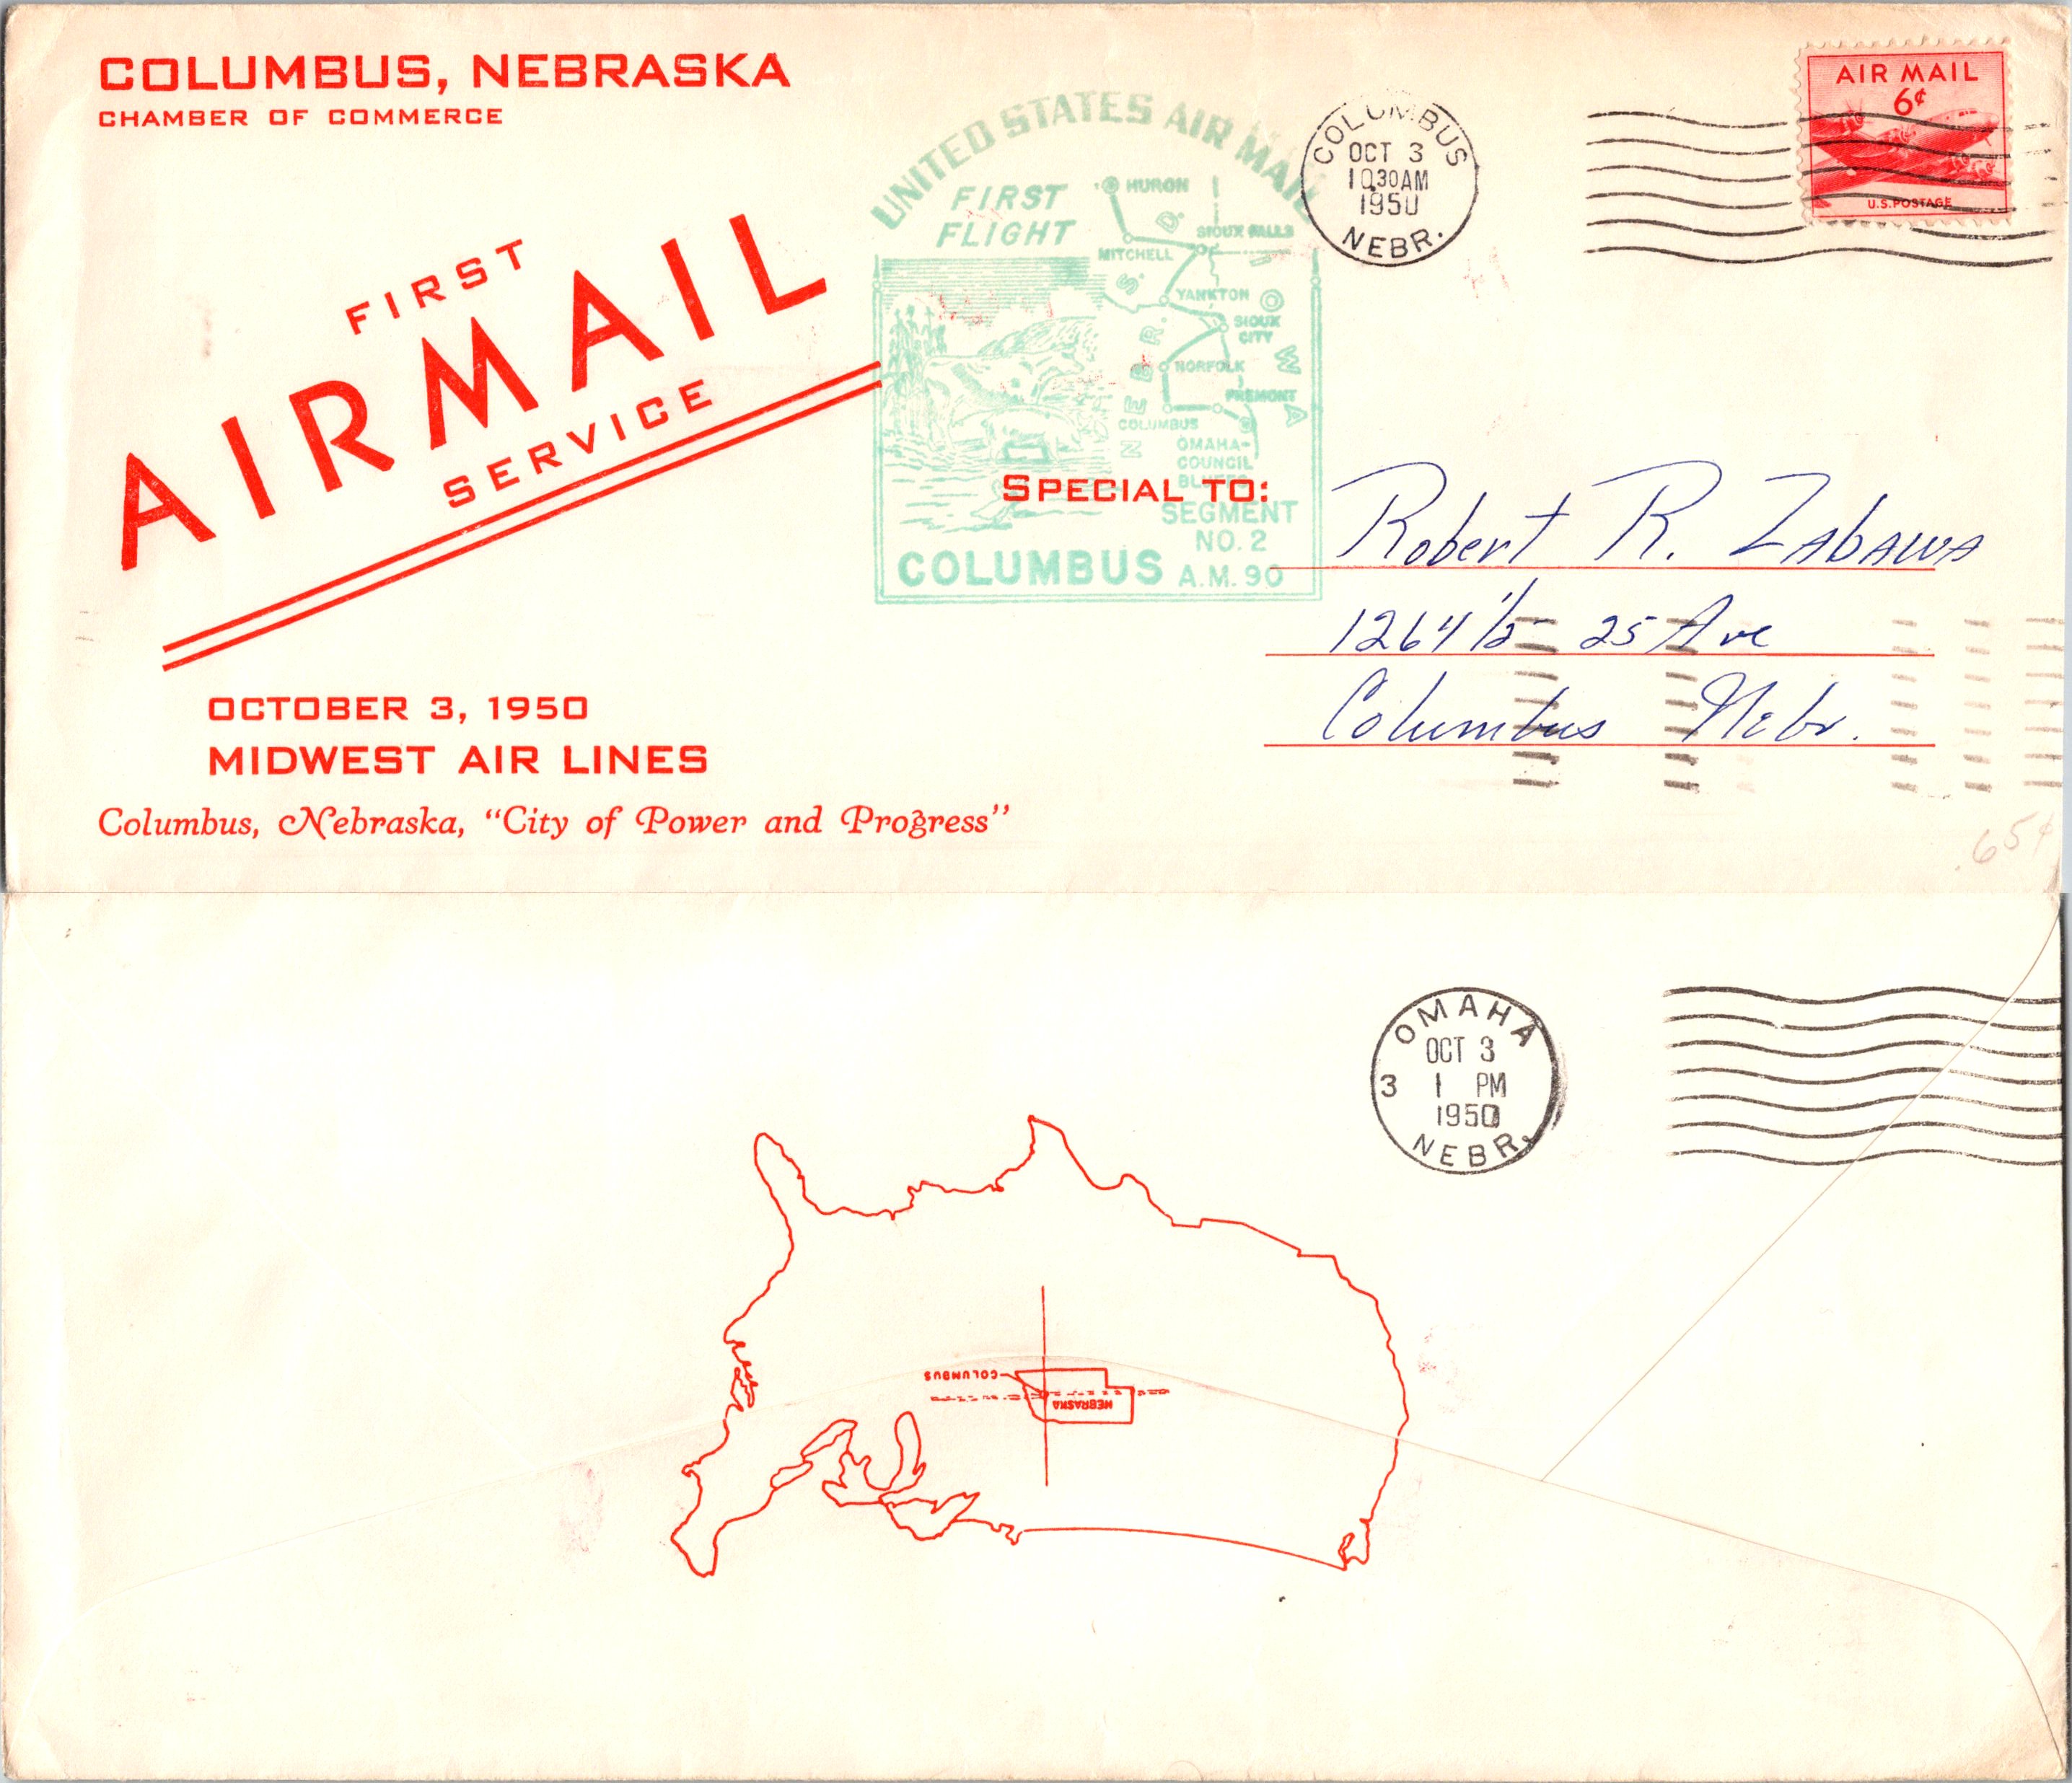 COLUMBUS, NEBRASKA
CHAMBER OF COMMERCE
FIRST
AIRMAIL
SERVICE
OCTOBER 3, 1950
MIDWEST AIR LINES
Columbus, Nebraska, “City of Power and Progress”
UNITED STATES AIR MAIL
FIRST
FLIGHT
HURON
S. D.
SIOUX FALLS
MITCHELL
YANKTON
SIOUX
CITY
IOWA
NEBR.
NORFOLK
FREMONT
COLUMBUS
OMAHA-
COUNCIL
BLUFFS
SEGMENT
NO. 2
COLUMBUS A.M. 90
COLUMBUS
OCT 3
10 30 AM
1950
NEBR.
AIR MAIL
6¢
U.S. POSTAGE
SPECIAL TO:
Robert R. Zabawa
1264 1/2 25 Ave
Columbus Nebr.
.65¢
OMAHA
OCT 3
3 1 PM
1950
NEBR.
COLUMBUS
NEBRASKA